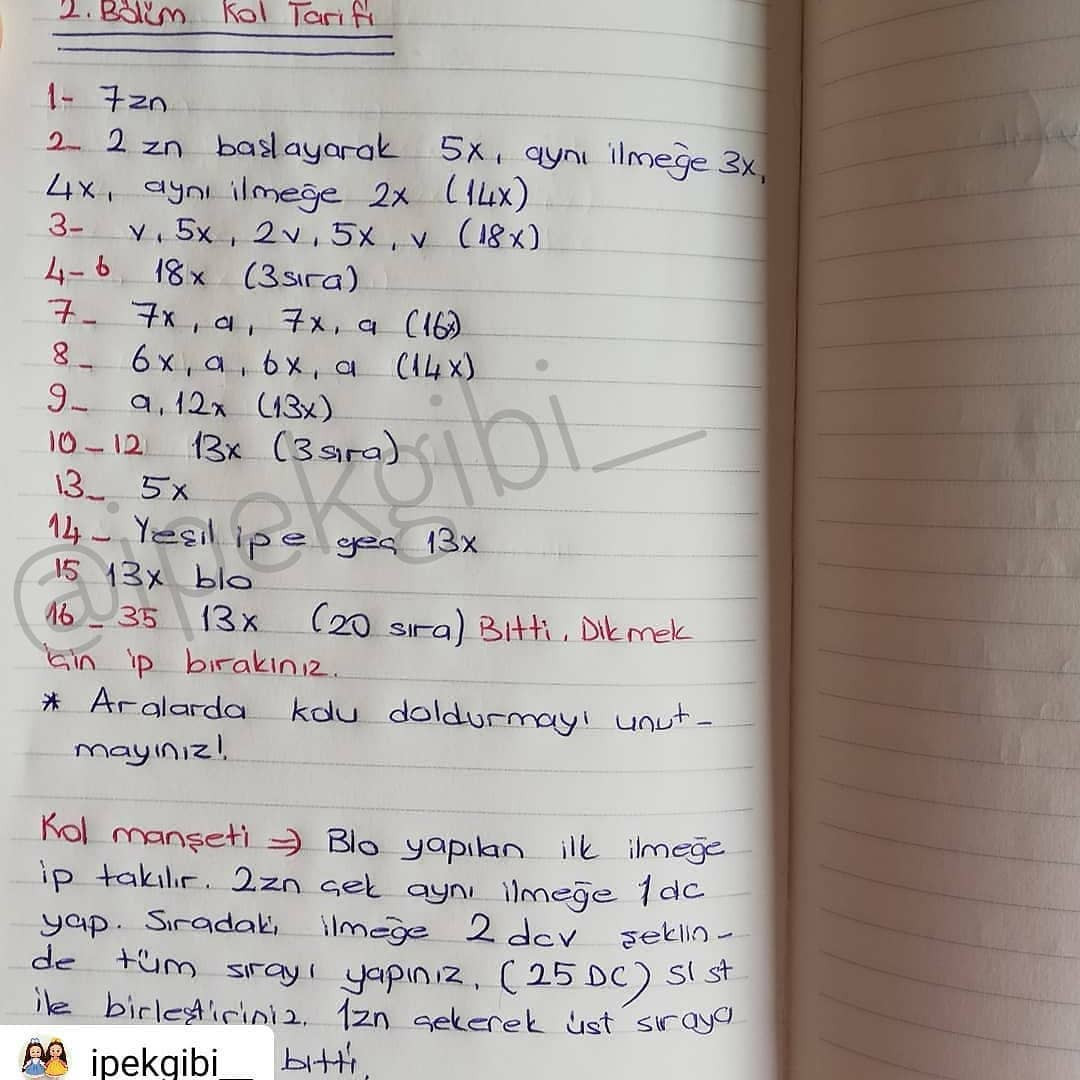 2. Bölüm Kol Tarifi
1- 7zn
2- 2 zn başlayarak 5x, aynı ilmeğe 3x,
4x, aynı ilmeğe 2x (14x)
3- v, 5x, 2v, 5x, v (18x)
4-6 18x (3sıra)
7- 7x, a, 7x, a (16x)
8- 6x, a, 6x, a (14x)
9- a, 12x (13x)
10-12 13x (3sıra)
13- 5x
14- Yeşil ipe geç 13x
15 13x blo
16-35 13x (20 sıra) Bitti. Dikmek
için ip bırakınız.
* Aralarda kolu doldurmayı unut-
mayınız!
Kol manşeti => Blo yapılan ilk ilmeğe
ip takılır. 2zn çek aynı ilmeğe 1dc
yap. Sıradaki ilmeğe 2 dcv şeklin-
de tüm sırayı yapınız. (25 DC) sl st
ile birleştiriniz. 1zn çekerek üst sıraya
bitti.
@ipekgibi_
ipekgibi__